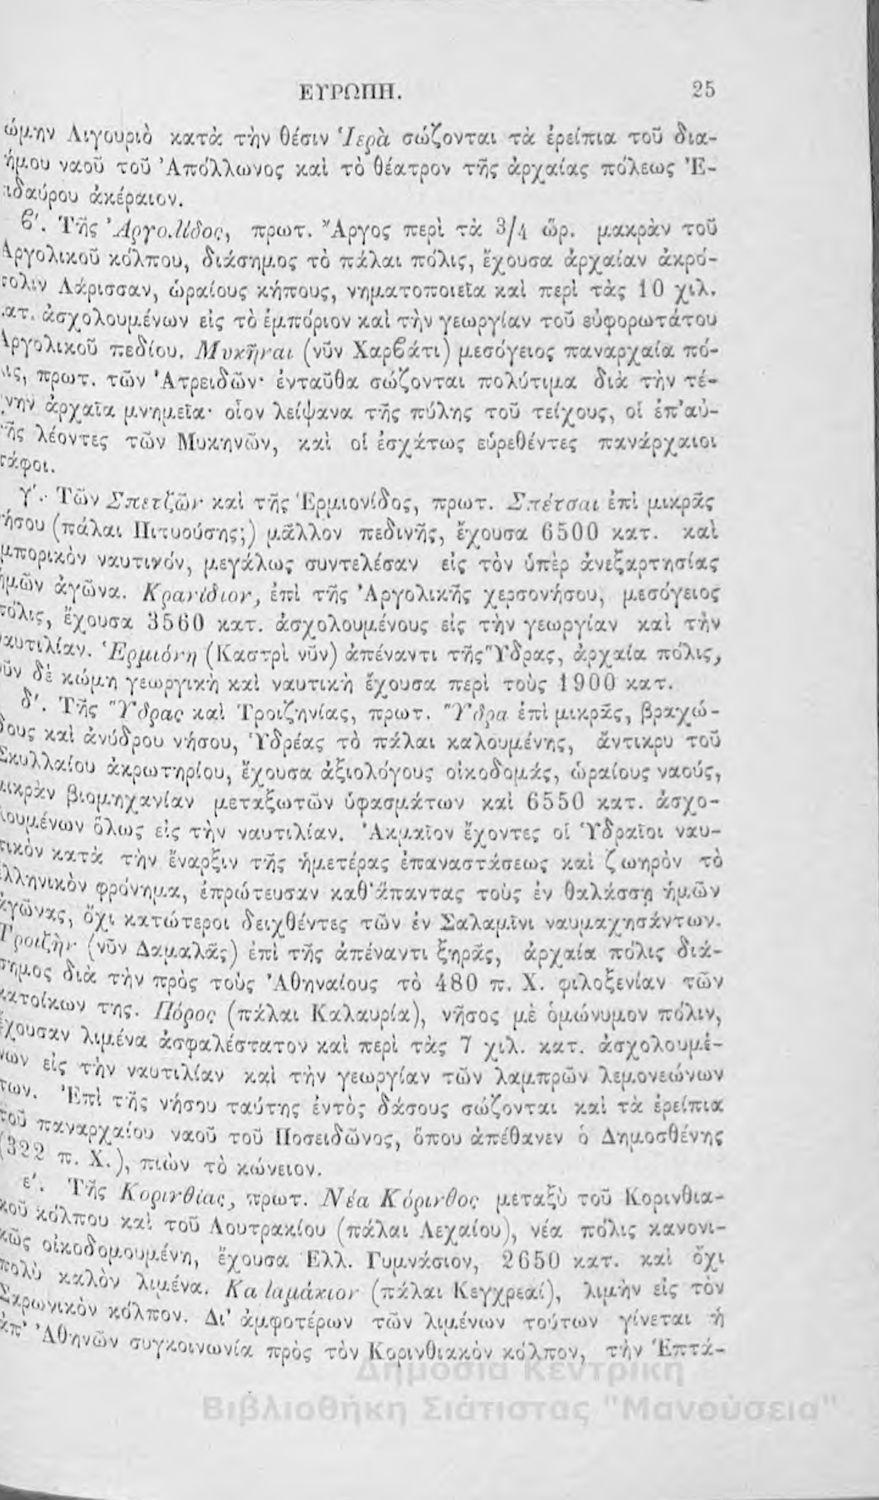 ΕΥΡΩΠΗ. 25
ώμην Λιγουριὸ κατὰ τὴν θέσιν Ἱερὰ σώζονται τὰ ἐρείπια τοῦ δια-
ήμου ναοῦ τοῦ Ἀπόλλωνος καὶ τὸ θέατρον τῆς ἀρχαίας πόλεως Ἐ-
ιδαύρου ἀκέραιον.
β΄. Τῆς Ἀργολίδος, πρωτ. Ἄργος περὶ τὰ 3/4 ὡρ. μακρὰν τοῦ
Ἀργολικοῦ κόλπου, διάσημος τὸ πάλαι πόλις, ἔχουσα ἀρχαίαν ἀκρό-
πολιν Λάρισσαν, ὡραίους κήπους, νηματοποιεῖα καὶ περὶ τὰς 10 χιλ.
κατ. ἀσχολουμένων εἰς τὸ ἐμπόριον καὶ τὴν γεωργίαν τοῦ εὐφορωτάτου
Ἀργολικοῦ πεδίου. Μυκῆναι (νῦν Χαρβάτι) μεσόγειος παναρχαία πό-
λις, πρωτ. τῶν Ἀτρειδῶν· ἐνταῦθα σώζονται πολύτιμα διὰ τὴν τέ-
χνην ἀρχαῖα μνημεῖα· οἷον λείψανα τῆς πύλης τοῦ τείχους, οἱ ἐπ' αὐ-
τῆς λέοντες τῶν Μυκηνῶν, καὶ οἱ ἐσχάτως εὑρεθέντες πανάρχαιοι
τάφοι.
γ΄. Τῶν Σπετζῶν καὶ τῆς Ἑρμιονίδος, πρωτ. Σπέτσαι ἐπὶ μικρᾶς
νήσου (πάλαι Πιτυούσης;) μᾶλλον πεδινῆς, ἔχουσα 6500 κατ. καὶ
ἐμπορικὸν ναυτικόν, μεγάλως συντελέσαν εἰς τὸν ὑπὲρ ἀνεξαρτησίας
ἡμῶν ἀγῶνα. Κρανίδιον, ἐπὶ τῆς Ἀργολικῆς χερσονήσου, μεσόγειος
πόλις, ἔχουσα 3560 κατ. ἀσχολουμένους εἰς τὴν γεωργίαν καὶ τὴν
ναυτιλίαν. Ἑρμιόνη (Καστρὶ νῦν) ἀπέναντι τῆς Ὕδρας, ἀρχαία πόλις,
νῦν δὲ κώμη γεωργικὴ καὶ ναυτικὴ ἔχουσα περὶ τοὺς 1900 κατ.
δ΄. Τῆς Ὕδρας καὶ Τροιζηνίας, πρωτ. Ὕδρα ἐπὶ μικρᾶς, βραχώ-
δους καὶ ἀνύδρου νήσου, Ὑδρέας τὸ πάλαι καλουμένης, ἄντικρυ τοῦ
Σκυλλαίου ἀκρωτηρίου, ἔχουσα ἀξιολόγους οἰκοδομάς, ὡραίους ναούς,
μικρὰν βιομηχανίαν μεταξωτῶν ὑφασμάτων καὶ 6550 κατ. ἀσχο-
λουμένων ὅλως εἰς τὴν ναυτιλίαν. Ἀκμαῖον ἔχοντες οἱ Ὑδραῖοι ναυ-
τικὸν κατὰ τὴν ἔναρξιν τῆς ἡμετέρας ἐπαναστάσεως καὶ ζωηρὸν τὸ
ἑλληνικὸν φρόνημα, ἐπρώτευσαν καθ' ἅπαντας τοὺς ἐν θαλάσσῃ ἡμῶν
ἀγῶνας, ὄχι κατώτεροι δειχθέντες τῶν ἐν Σαλαμῖνι ναυμαχησάντων.
Τροιζὴν (νῦν Δαμαλᾶς) ἐπὶ τῆς ἀπέναντι ξηρᾶς, ἀρχαία πόλις διά-
σημος διὰ τὴν πρὸς τοὺς Ἀθηναίους τὸ 480 π. Χ. φιλοξενίαν τῶν
κατοίκων της. Πόρος (πάλαι Καλαυρία), νῆσος μὲ ὁμώνυμον πόλιν,
ἔχουσαν λιμένα ἀσφαλέστατον καὶ περὶ τὰς 7 χιλ. κατ. ἀσχολουμέ-
νων εἰς τὴν ναυτιλίαν καὶ τὴν γεωργίαν τῶν λαμπρῶν λεμονεώνων
των. Ἐπὶ τῆς νήσου ταύτης ἐντὸς δάσους σώζονται καὶ τὰ ἐρείπια
τοῦ παναρχαίου ναοῦ τοῦ Ποσειδῶνος, ὅπου ἀπέθανεν ὁ Δημοσθένης
(322 π. Χ.), πιὼν τὸ κώνειον.
ε΄. Τῆς Κορινθίας, πρωτ. Νέα Κόρινθος μεταξὺ τοῦ Κορινθια-
κοῦ κόλπου καὶ τοῦ Λουτρακίου (πάλαι Λεχαίου), νέα πόλις κανονι-
κῶς οἰκοδομουμένη, ἔχουσα Ἑλλ. Γυμνάσιον, 2650 κατ. καὶ ὄχι
πολὺ καλὸν λιμένα. Καλαμάκιον (πάλαι Κεγχρεαί), λιμὴν εἰς τὸν
Σαρωνικὸν κόλπον. Δι' ἀμφοτέρων τῶν λιμένων τούτων γίνεται ἡ
ἀπ' Ἀθηνῶν συγκοινωνία πρὸς τὸν Κορινθιακὸν κόλπον, τὴν Ἑπτά-
Δημόσια Κεντρική
Βιβλιοθήκη Σιάτιστας "Μανούσεια"